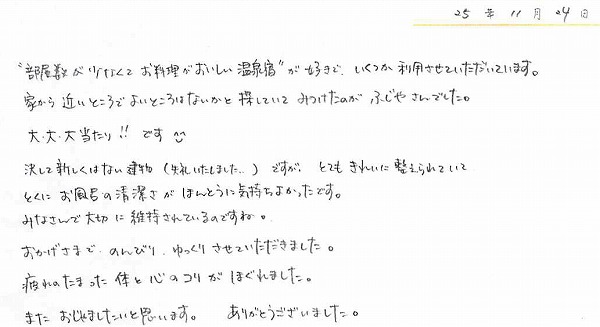 25年11月24日
"部屋数が少なくてお料理がおいしい温泉宿"が好きで、いくつか利用させていただいています。
家から近いところでよいところはないかと探していてみつけたのがふじやさんでした。
大・大・大当たり!!です
決して新しくはない建物(失礼いたしました..)ですが、とてもきれいに整えられていて
とくにお風呂の清潔さがほんとうに気持ちよかったです。
みなさんで大切に維持されているのですね。
おかげさまで、のんびり、ゆっくりさせていただきました。
疲れのたまった体と心のコリがほぐれました。
またおじゃましたいと思います。 ありがとうございました。